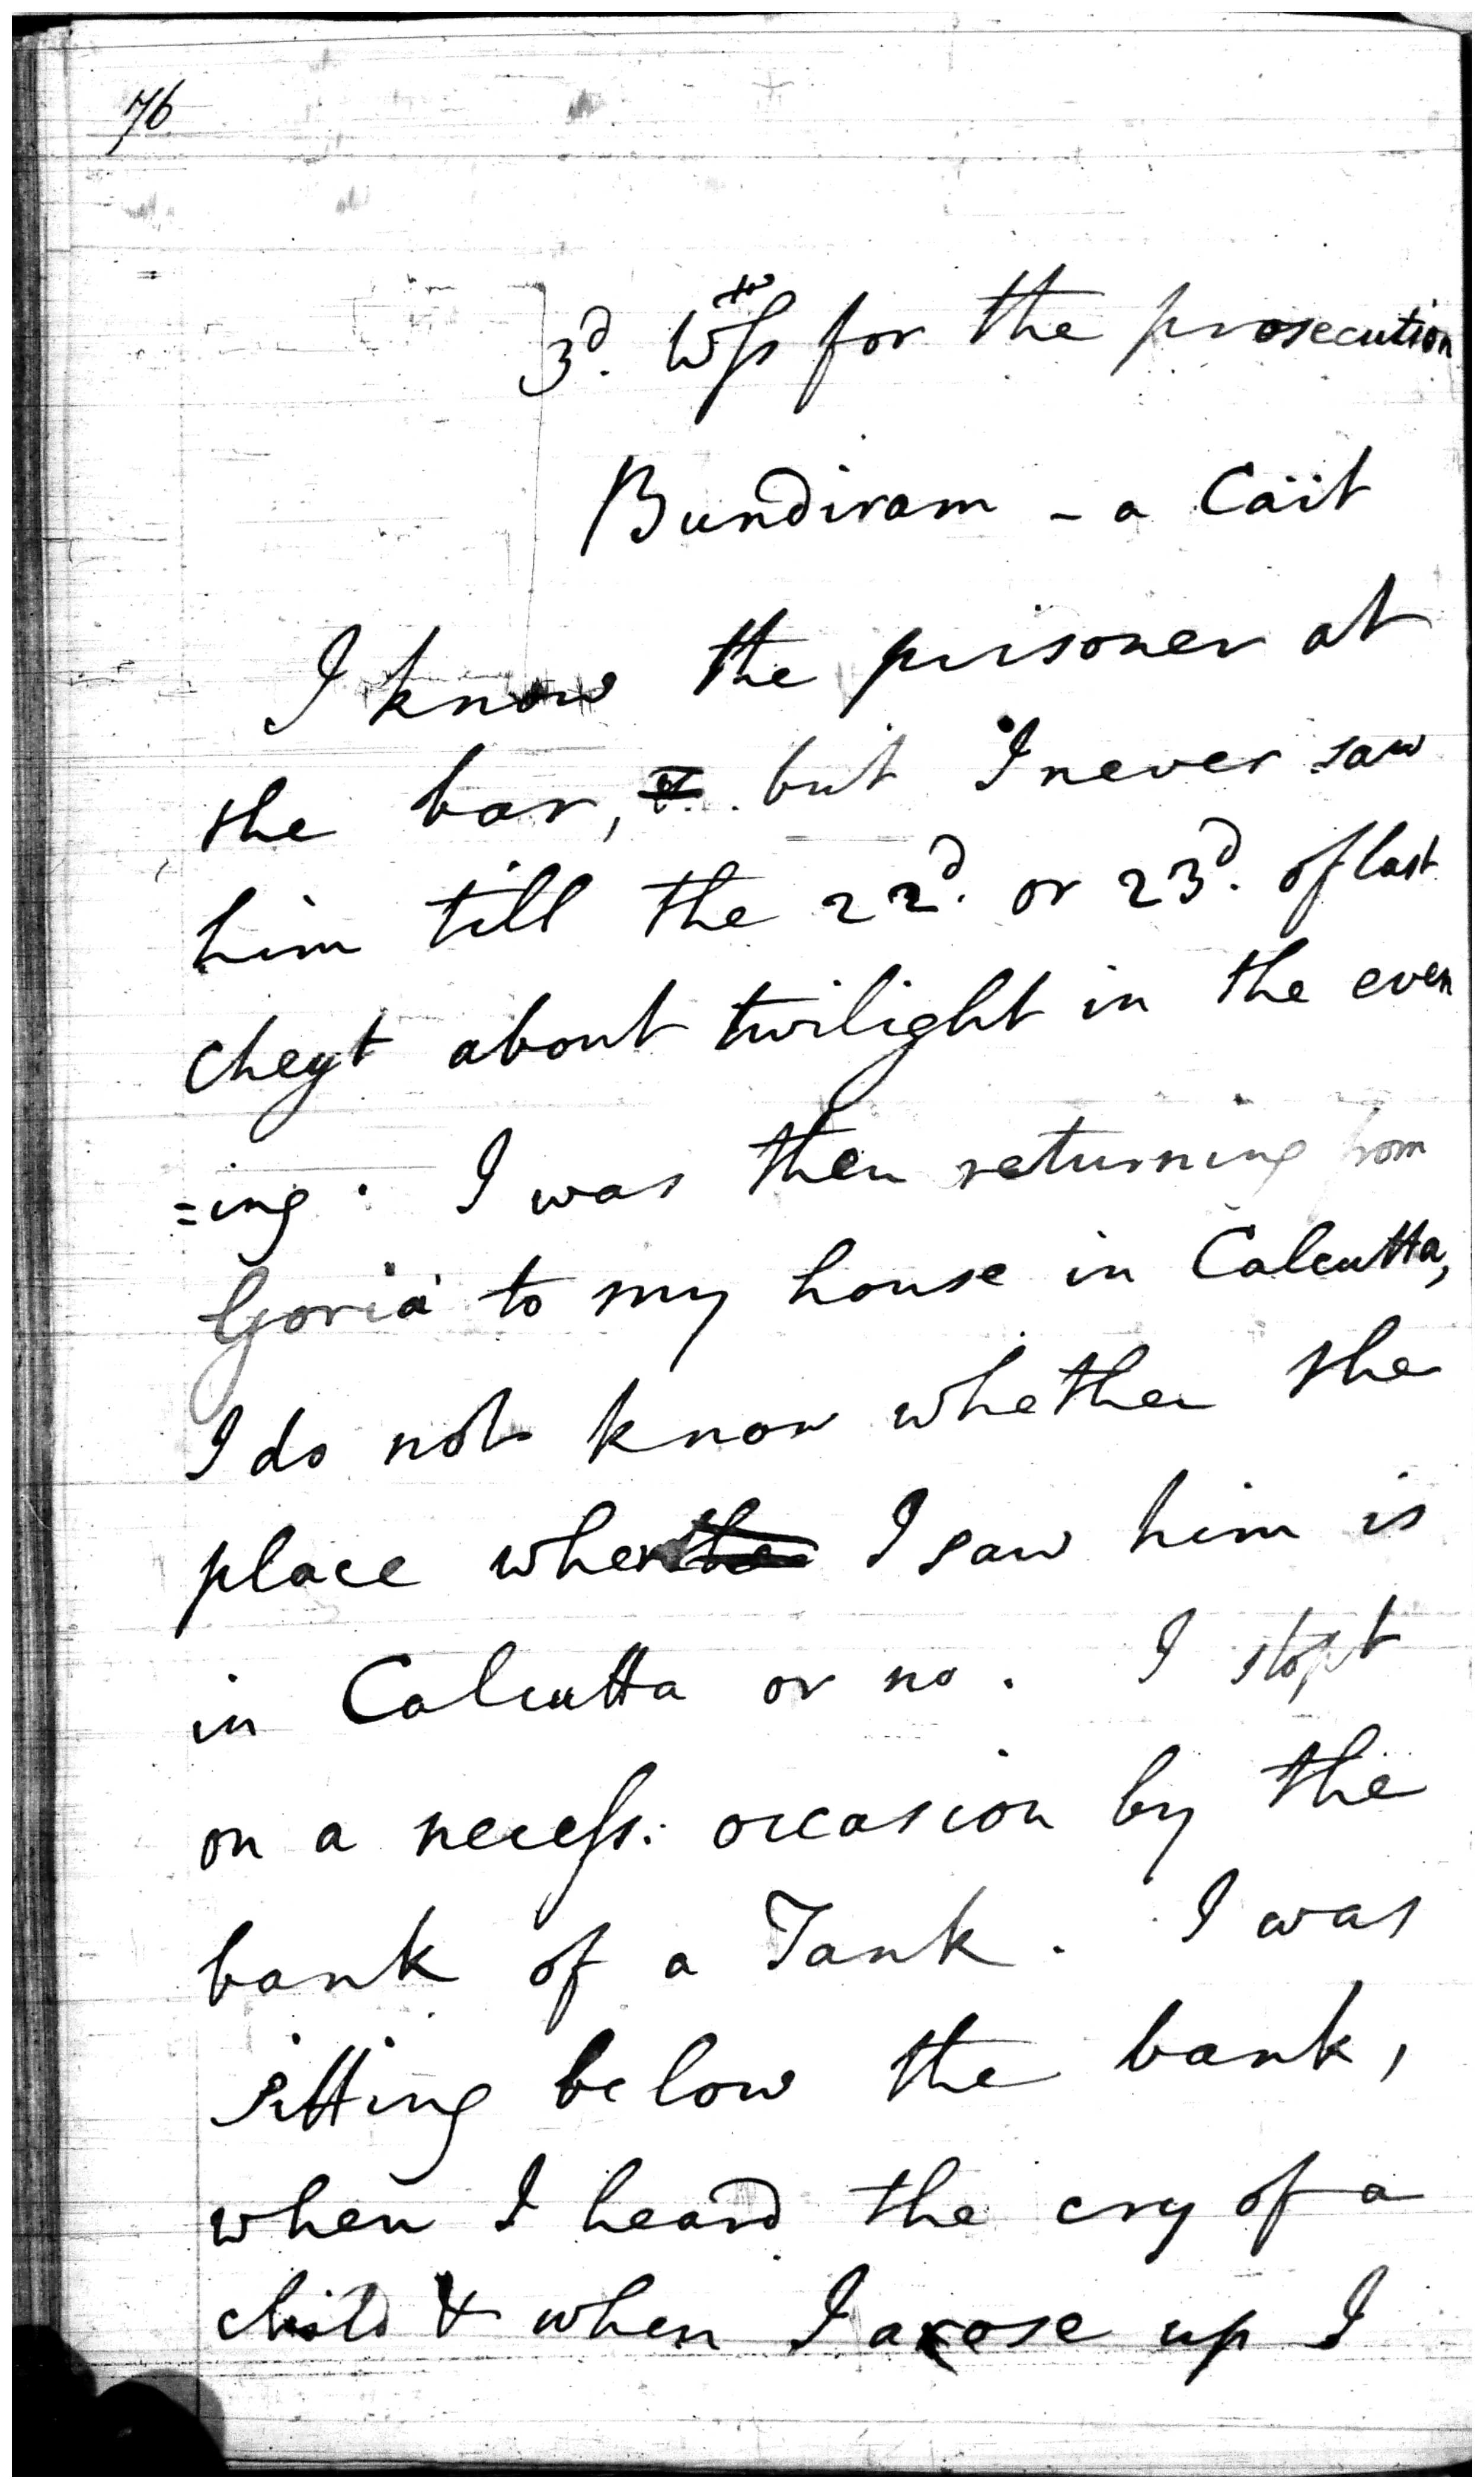 76
3d. Wtss for the prosecution
Bundiram - a Caït
I know the prisoner at
the bar, but I never saw
him till the 22d. or 23d. of last
Cheyt about twilight in the even
=ing. I was then returning from
Goria to my house in Calcutta,
I do not know whether the
place where I saw him is
in Calcutta or no. I stopt
on a necess: occasion by the
bank of a Tank. I was
sitting below the bank,
when I heard the cry of a
child & when I arose up I